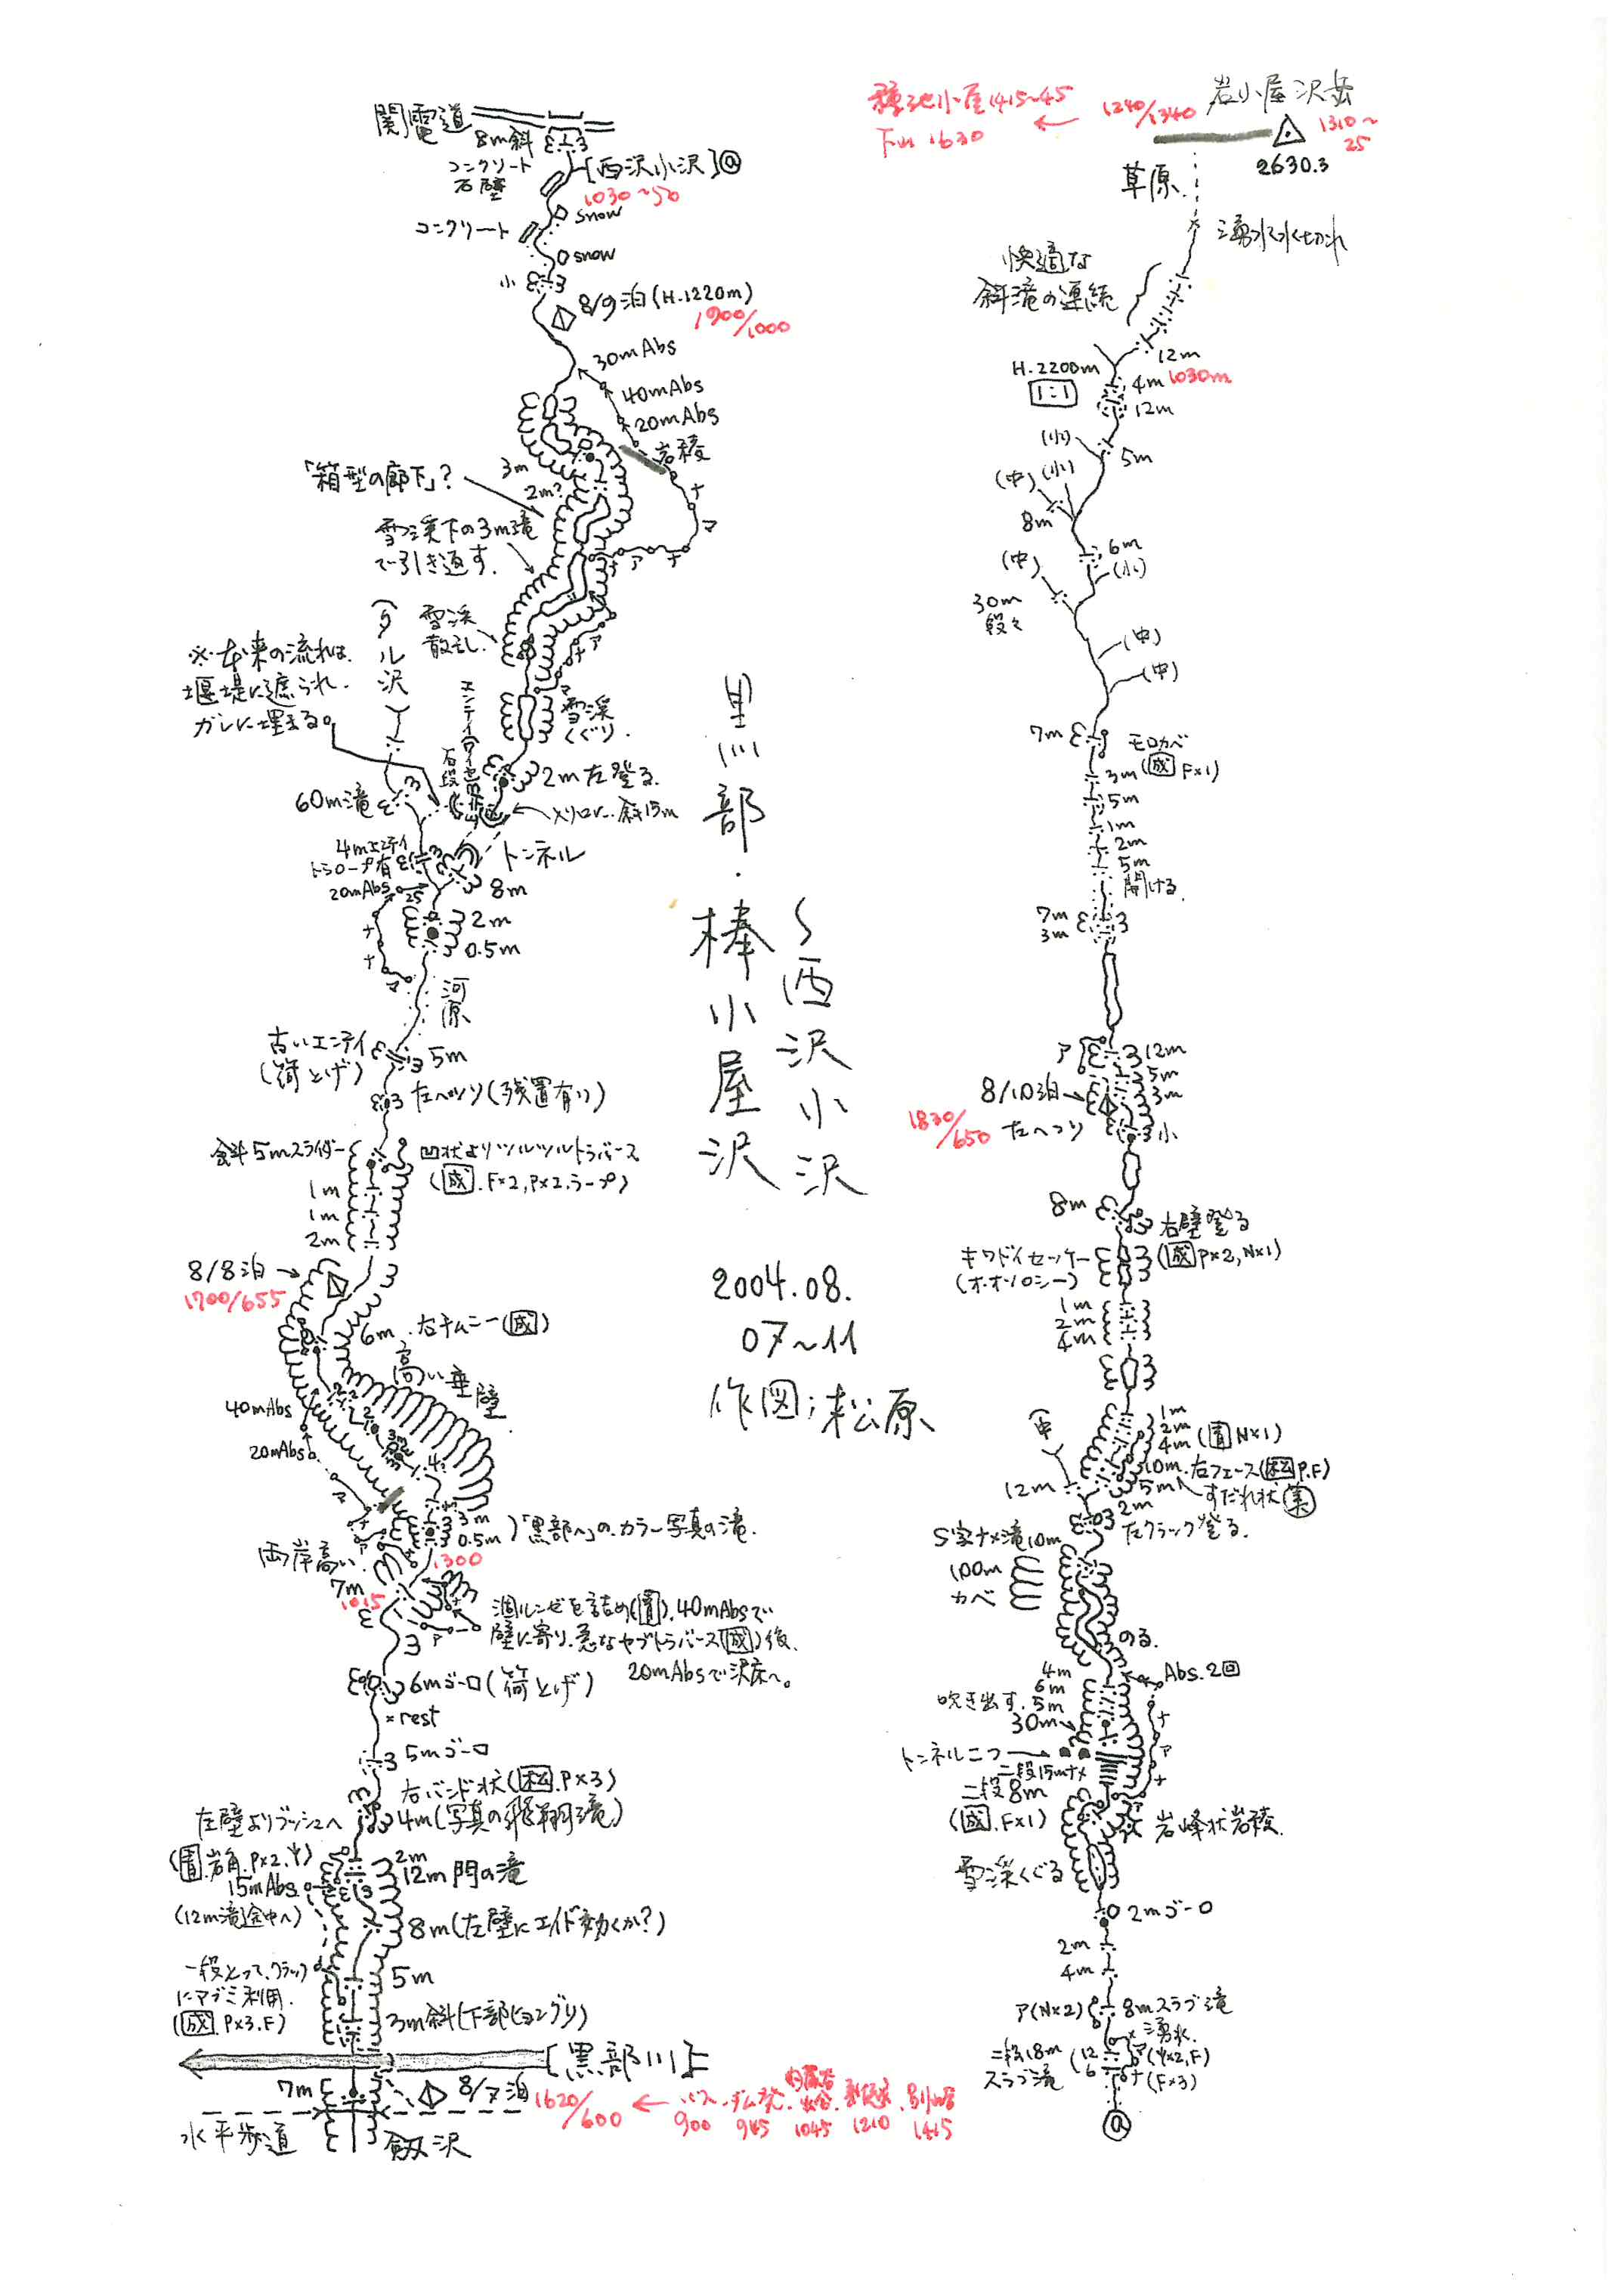 関電道
8m斜
コンクリート
石壁
[西沢小沢]@
1030~50
コンクリート
snow
snow
小
8/9泊(H.1220m)
1900/1000
30mAbs
40mAbs
20mAbs
岩稜
「箱型の廊下」?
3m
2m?
雪渓下の3m滝
で引き返す.
ナ
マ
ナ
ア
ナ
雪渓
散乱.
※本来の流れは.
堰堤に遮られ.
ガレに埋まる。
タル沢
雪渓
くぐり.
石段
2m左登る.
60m滝
斜15m
4mエンテイ
トラロープ有
トンネル
20mAbs
25
8m
2m
0.5m
河原
古いエンテイ
(荷上げ)
5m
左ヘツリ(残置有り)
斜5mスライダー
凹状よりツルツルトラバース
(成.F×2,P×2.ラープ)
1m
1m
2m
8/8泊
1700/655
6m.右チムニー(成)
高い垂壁
40mAbs
20mAbs
3m
0.5m
「黒部へ」の.カラー写真の滝.
1300
両岸高い.
7m
1015
涸ルンゼを詰め(置).40mAbsで
壁に寄り.急なヤブトラバース(成)後.
20mAbsで沢床へ。
6mゴーロ(荷上げ)
×rest
5mゴーロ
右バンド状(松.P×3)
4m(写真の飛翔滝)
左壁よりブッシュへ
(置.岩角.P×2.)
15mAbs.
(12m滝途中へ)
2m
12m門の滝
8m(左壁にエイド効くか?)
一段とって.クラック
にアブミ利用.
(成.P×3.F)
5m
3m斜(下部ヒョングリ)
[黒部川]
7m
8/7泊
1620/600
水平歩道
剱沢
バス
900
ダム発.
945
内蔵谷
出合
1045
1210
1415
黒部・棒小屋沢
~西沢小沢
2004.08.
07~11
作図;松原
種池小屋1415~45
下山1630
1240/1340
岩小屋沢岳
1310~
25
2630.3
草原.
湧水で水切れ
快適な
斜滝の連続
12m
H.2200m
1:1
4m
1030m
12m
(小)
5m
(中)
(小)
8m
6m
(中)
(小)
30m
段々
(中)
(中)
7m
モロカベ
(成F×1)
3m
5m
1m
2m
5m
開ける.
7m
3m
ア
12m
5m
3m
8/10泊
1830/650
左へつり
小
8m
右壁登る
(成P×2,N×1)
キワドイセッケー
(オ・オソロシー)
1m
2m
4m
(中)
1m
2m
4m(置N×1)
10m.右フェース(松P.F)
5m
すだれ状
12m
2m
左クラック登る.
S字ナメ滝10m
100m
カベ
のる.
4m
6m
吹き出す.5m
30m
Abs.2回
トンネル二つ
二段15mナメ
二段8m
(成.F×1)
岩峰状岩稜.
雪渓くぐる
2mゴーロ
2m
4m
ア(N×2)
8mスラブ滝
湧水.
二段18m
スラブ滝
12
6
(F×3)
@